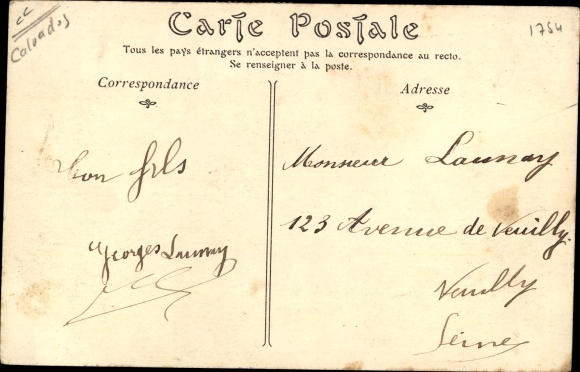 Calvados
1754
Carte Postale
Tous les pays étrangers n'acceptent pas la correspondance au recto.
Se renseigner à la poste.
Correspondance
Adresse
Ton fils
Georges Launay
Monsieur Launay
123 Avenue de Neuilly
Neuilly
Seine